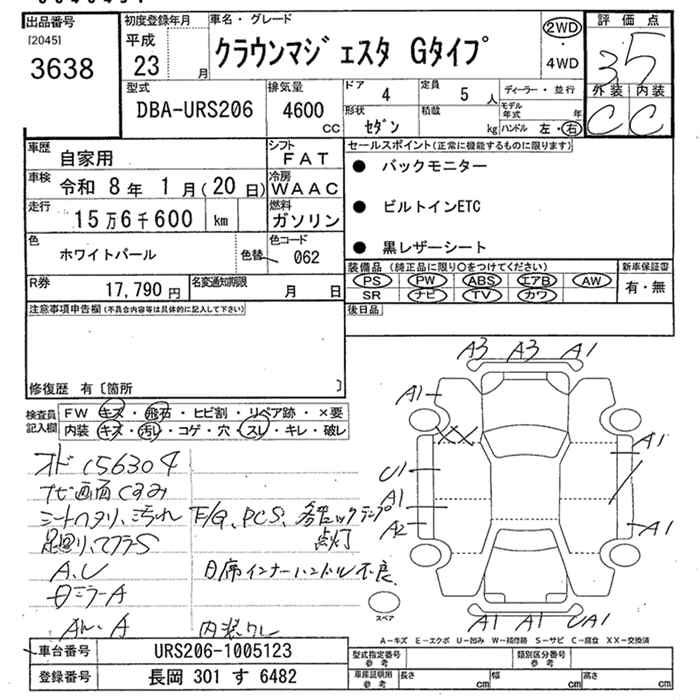 出品番号
[2045]
3638
初度登録年月
平成
23 月
車名・グレード
クラウンマジェスタ Gタイプ
2WD
・
4WD
評価点
3.5
外装 内装
C C
型式
DBA-URS206
排気量
4600
CC
ドア
4
定員
5 人
形状
セダン
積載
kg
ディーラー・並行
モデル年式 年
ハンドル 左・右
車歴
自家用
シフト
FAT
車検
令和 8年 1月(20日)
冷房
WAAC
走行
15万6千600 km
燃料
ガソリン
色
ホワイトパール
色替
色コード
062
R券
17,790 円
名変通知期限
月 日
セールスポイント(正常に機能するものに限ります)
● バックモニター
● ビルトインETC
● 黒レザーシート
装備品 (純正品に限り○をつけてください)
PS PW ABS エアB AW
SR ナビ TV カワ
新車保証書
有・無
注意事項申告欄(不具合内容等は具体的に記入して下さい)
後日品
修復歴 有〔箇所 〕
検査員記入欄
FW キズ・飛石・ヒビ割・リペア跡・×要
内装 キズ・汚レ・コゲ・穴・スレ・キレ・破レ
オド156304
ナビ画面くすみ
シートヘタリ、汚れ F/G、PCS、各種ロックランプ
点灯
足廻り、マフラーS
A、U
D席インナーハンドル不良
ミラーA
AW、A
内装ワレ
A3 A3 A1
A1
XX
A1
U1
A1
A2
A1
A1 A1 UA1
スペア
A-キズ E-エクボ U-凹み W-補修跡 S-サビ C-腐食 XX-交換済
車台番号
URS206-1005123
登録番号
長岡 301 す 6482
型式指定番号
参考
類別区分番号
参考
車庫証明用
参考
長さ cm
幅 cm
高さ cm